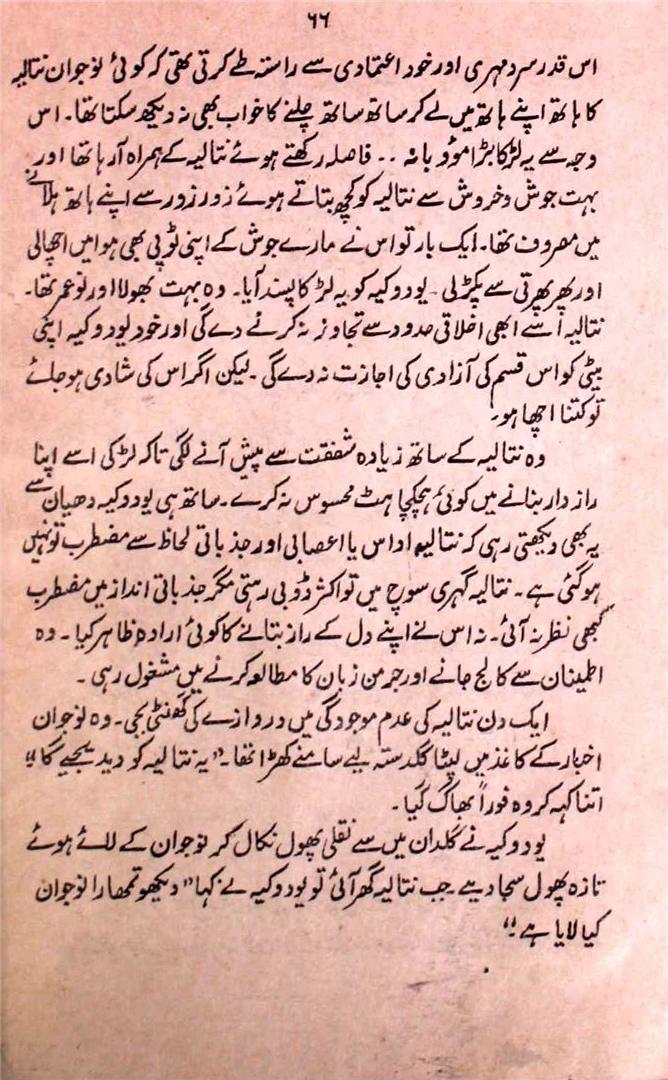 ۶۶
اس قدر سرد مہری اور خود اعتمادی سے راستہ طے کرتی تھی کہ کوئی نوجوان نتالیہ
کا ہاتھ اپنے ہاتھ میں لے کر ساتھ ساتھ چلنے کا خواب بھی نہ دیکھ سکتا تھا۔ اس
وجہ سے یہ لڑکا بڑا مؤدبانہ .. فاصلہ رکھتے ہوئے نتالیہ کے ہمراہ آرہا تھا اور
بہت جوش وخروش سے نتالیہ کو کچھ بتاتے ہوئے زور زور سے اپنے ہاتھ ہلانے
میں مصروف تھا۔ ایک بار تو اس نے مارے جوش کے اپنی ٹوپی بھی ہوا میں اچھالی
اور پھر پھرتی سے پکڑ لی ۔ یودوکیہ کو یہ لڑکا پسند آیا۔ وہ بہت بھولا اور نوعمر تھا۔
نتالیہ اسے ابھی اخلاقی حدود سے تجاوز نہ کرنے دے گی اور خود یودوکیہ اپنی
بیٹی کو اس قسم کی آزادی کی اجازت نہ دے گی ۔ لیکن اگر اس کی شادی ہو جائے
تو کتنا اچھا ہو۔
وہ نتالیہ کے ساتھ زیادہ شفقت سے پیش آنے لگی تاکہ لڑکی اسے اپنا
راز دار بنانے میں کوئی ہچکچاہٹ محسوس نہ کرے ۔ ساتھ ہی یودوکیہ دھیان سے
یہ بھی دیکھتی رہی کہ نتالیہ اداس یا اعصابی اور جذباتی لحاظ سے مضطرب تو نہیں
ہو گئی ہے ۔ نتالیہ گہری سوچ میں تو اکثر ڈوبی رہتی مگر جذباتی انداز میں مضطرب
کبھی نظر نہ آئی ۔ نہ اس نے اپنے دل کے راز بتانے کا کوئی ارادہ ظاہر کیا ۔ وہ
اطمینان سے کالج جانے اور جرمن زبان کا مطالعہ کرنے میں مشغول رہی ۔
ایک دن نتالیہ کی عدم موجودگی میں دروازے کی گھنٹی بجی ۔ وہ نوجوان
اخبار کے کاغذ میں لپٹا گلدستہ لیے سامنے کھڑا تھا ۔ "یہ نتالیہ کو دیدیجیے گا"
اتنا کہہ کر وہ فوراً بھاگ گیا ۔
یودوکیہ نے گلدان میں سے نقلی پھول نکال کر نوجوان کے لائے ہوئے
تازہ پھول سجا دیے جب نتالیہ گھر آئی تو یودوکیہ نے کہا "دیکھو تمھارا نوجوان
کیا لایا ہے"